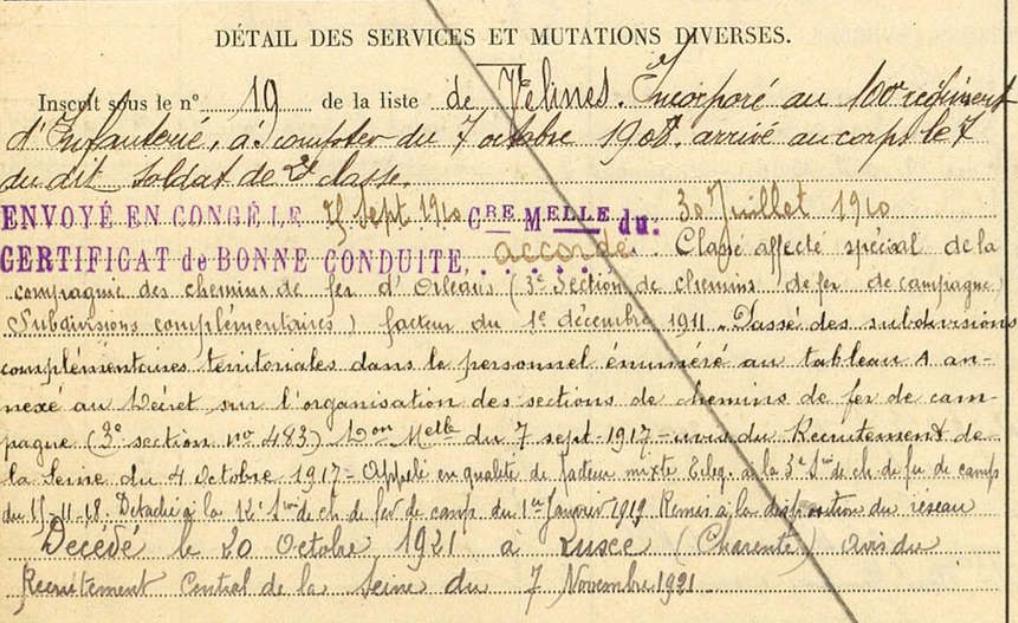 DÉTAIL DES SERVICES ET MUTATIONS DIVERSES.
Inscrit sous le n° 19 de la liste de Vélines. Incorporé au 100e régiment
d'Infanterie, à compter du 7 octobre 1908. arrivé au corps le 7
du dit soldat de 2e classe.
ENVOYÉ EN CONGÉ LE 25 Sept 1910 CRE MELLE du. 30 Juillet 1910
CERTIFICAT de BONNE CONDUITE, accordé. Classé affecté spécial de la
compagnie des chemins de fer d'Orléans (3e Section de chemins de fer de campagne
Subdivisions complémentaires) facteur du 1e décembre 1911. Passé des subdivisions
complémentaires territoriales dans le personnel énuméré au tableau A an-
nexé au Décret sur l'organisation des sections de chemins de fer de cam-
pagne (3e section no 483) Don Melle du 7 sept-1917 - avis du Recrutement de
la Seine du 4 Octobre 1917 - Appelé en qualité de facteur mixte à la 3e Son de ch. de fer de camp
du 11-11-18. Détaché à la 12e Son de ch. de fer de camp. du 1er Janvier 1919 Remis à la disposition du réseau
Décédé le 20 Octobre 1921 à Lusce (Charente) avis du
Recrutement Central de la Seine du 7 Novembre 1921